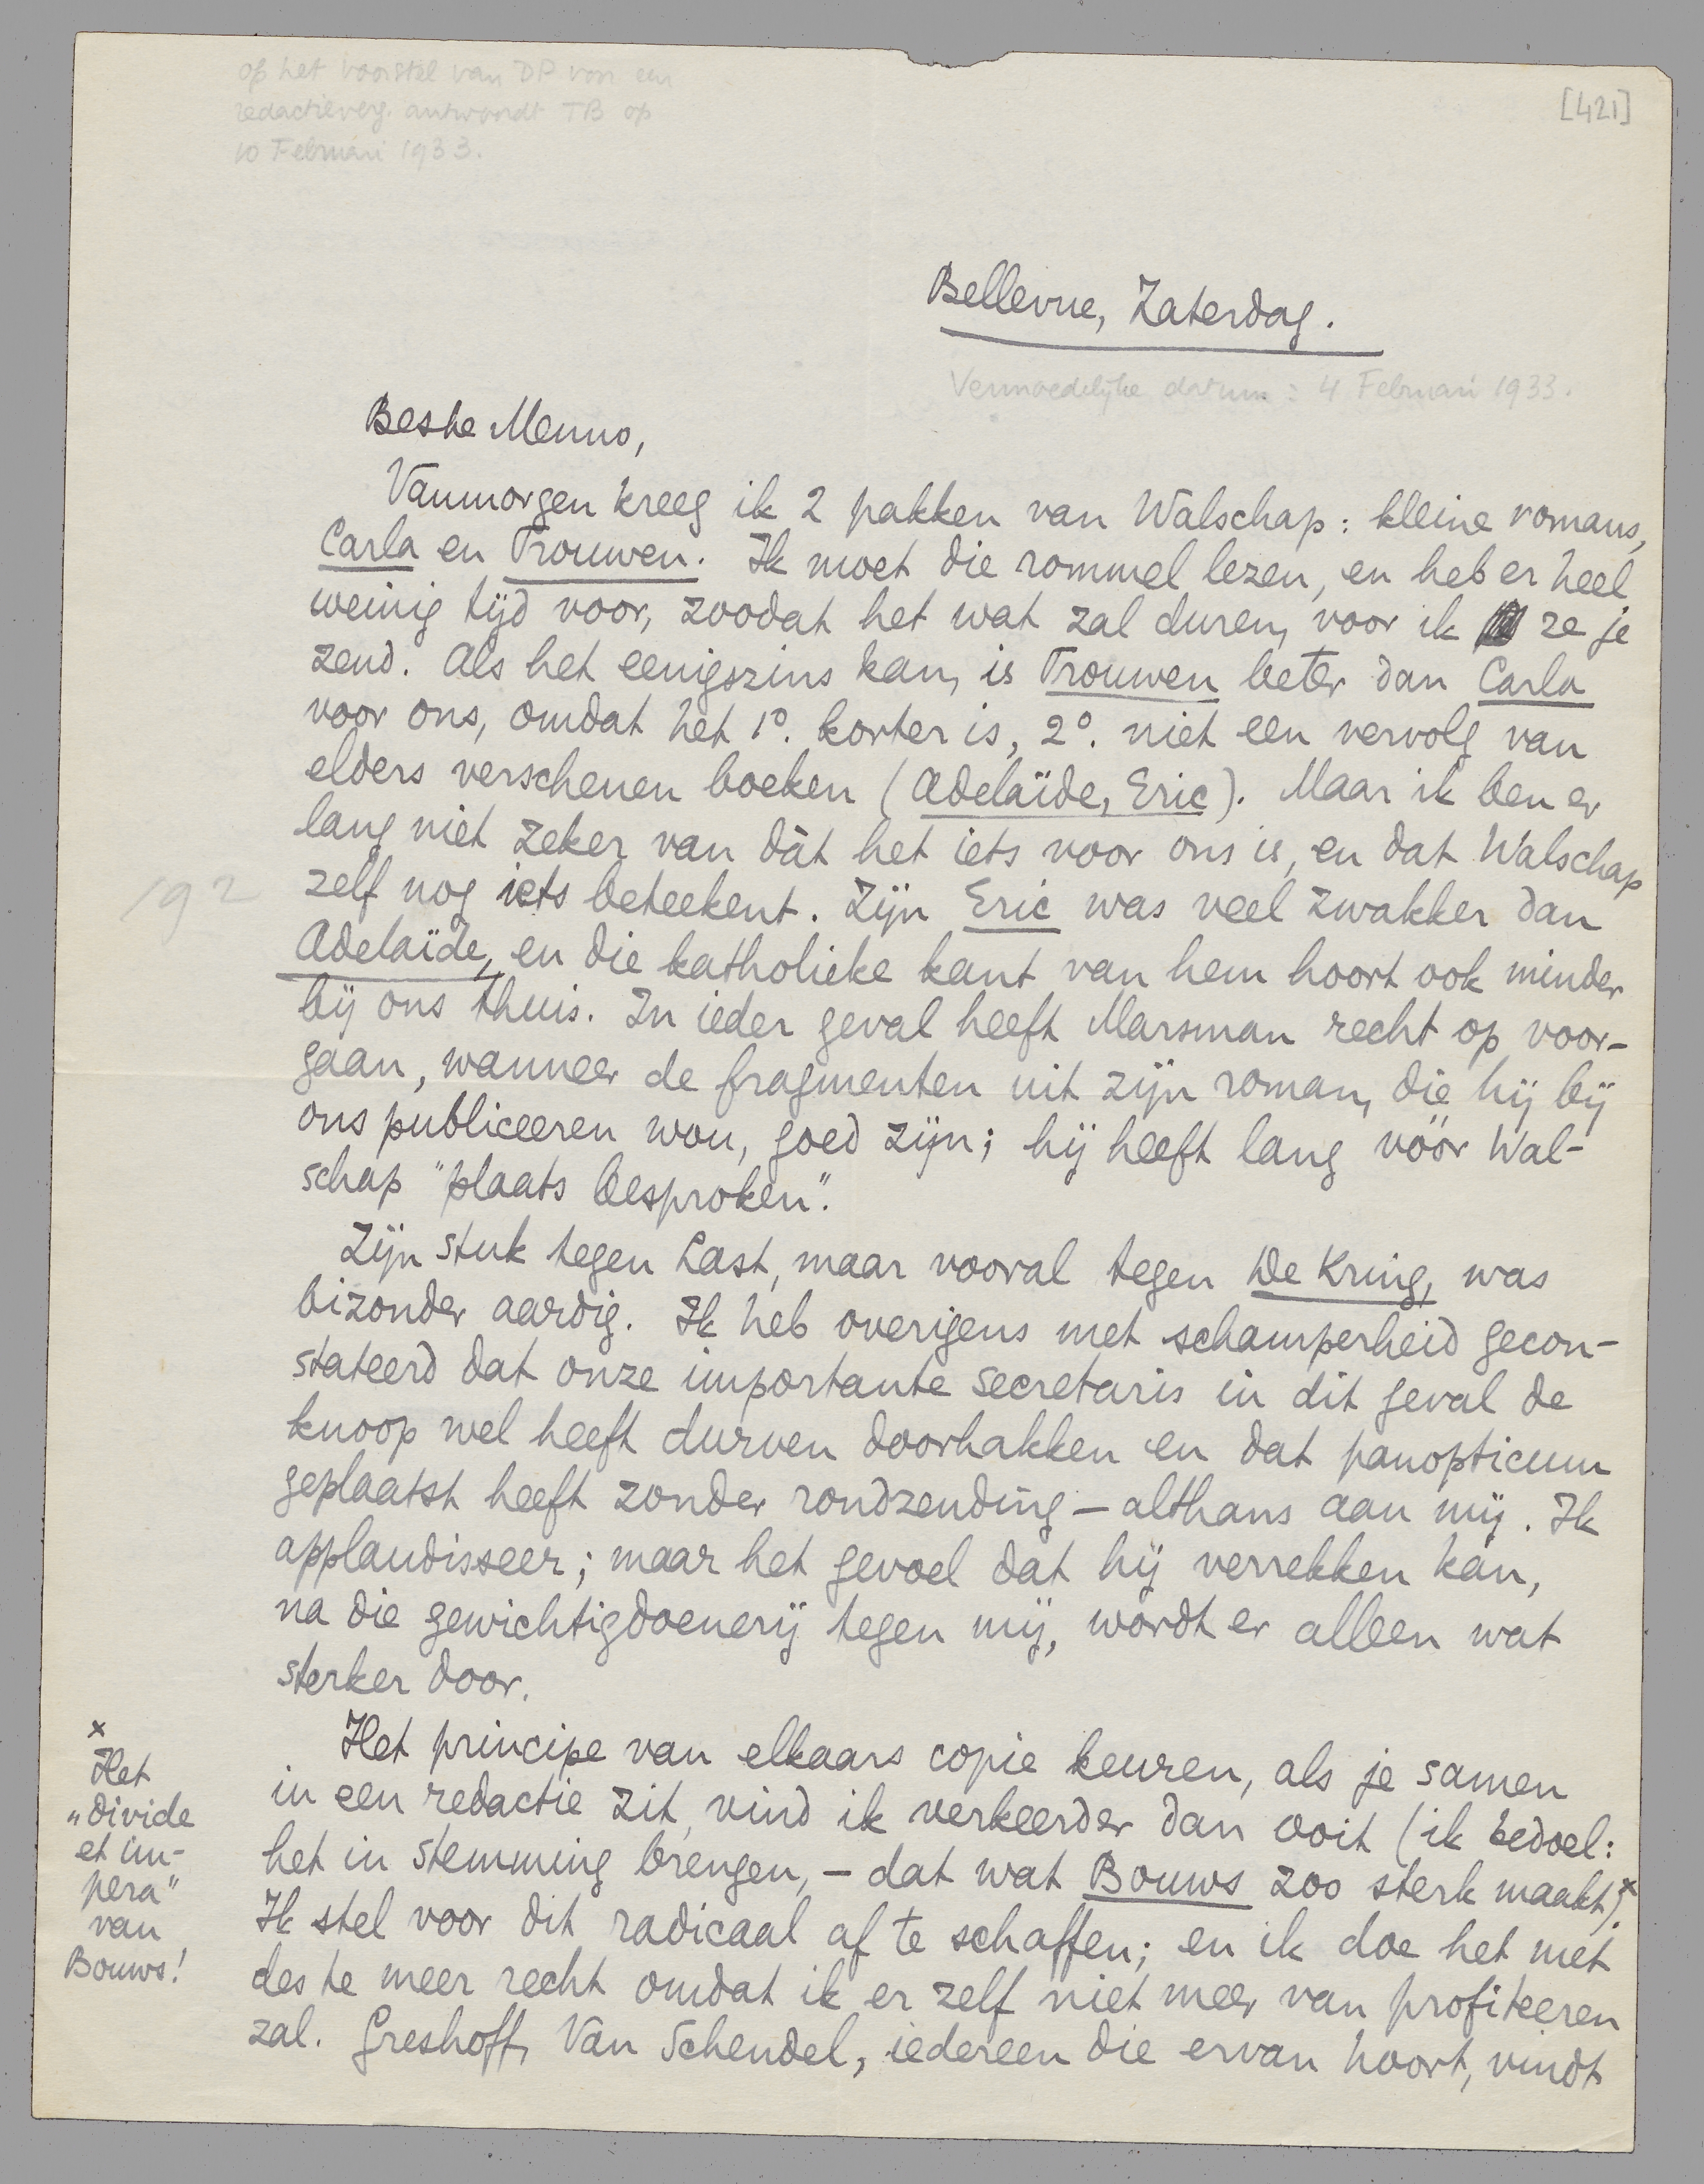 op het voorstel van DP voor een
redactieverg. antwoordt TB op
10 Februari 1933.
[421]
Bellevue, Zaterdag.
Vermoedelijke datum: 4 Februari 1933.
Beste Menno,
Vanmorgen kreeg ik 2 pakken van Walschap: kleine romans,
Carla en Trouwen. Ik moet die rommel lezen, en heb er heel
weinig tijd voor, zoodat het wat zal duren, voor ik ze je
zend. Als het eenigszins kan, is Trouwen beter dan Carla
voor ons, omdat het 1°. korter is, 2°. niet een vervolg van
elders verschenen boeken (Adelaïde, Eric). Maar ik ben er
lang niet zeker van dàt het iets voor ons is, en dat Walschap
192
zelf nog iets beteekent. Zijn Eric was veel zwakker dan
Adelaïde, en die katholieke kant van hem hoort ook minder
bij ons thuis. In ieder geval heeft Marsman recht op voor-
gaan, wanneer de fragmenten uit zijn roman, die hij bij
ons publiceeren wou, goed zijn; hij heeft lang vóór Wal-
schap "plaats besproken".
Zijn stuk tegen Last, maar vooral tegen De Kring, was
bizonder aardig. Ik heb overigens met schamperheid gecon-
stateerd dat onze importante secretaris in dit geval de
knoop wel heeft durven doorhakken en dat panopticum
geplaatst heeft zonder rondzending – althans aan mij. Ik
applaudisseer; maar het gevoel dat hij verrekken kan,
na die gewichtigdoenerij tegen mij, wordt er alleen wat
sterker door.
Het principe van elkaars copie keuren, als je samen
in een redactie zit, vind ik verkeerder dan ooit (ik bedoel:
het in stemming brengen, – dat wat Bouws zoo sterk maakt)x.
Ik stel voor dit radicaal af te schaffen; en ik doe het met
des te meer recht omdat ik er zelf niet meer van profiteeren
zal. Greshoff, Van Schendel, iedereen die ervan hoort, vindt
x
Het
„divide
et im-
pera"
van
Bouws!